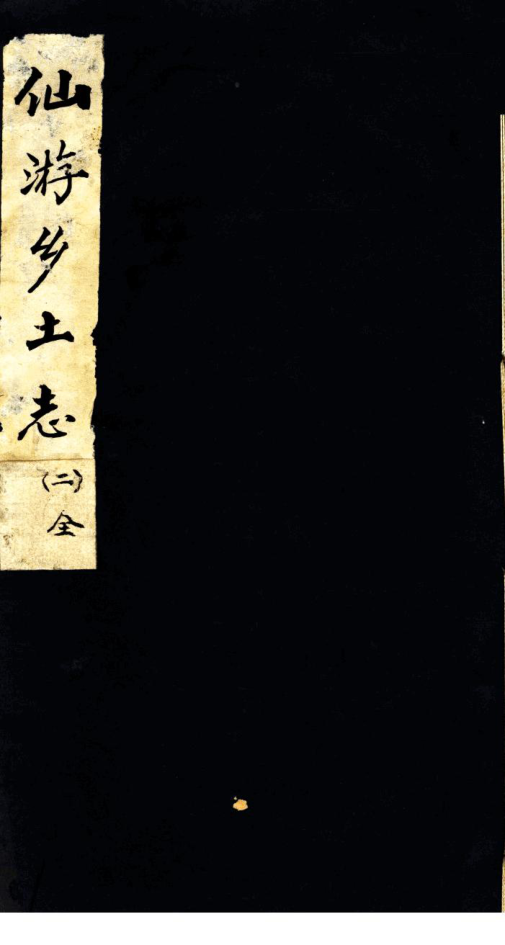 仙游乡土志
(二)
全